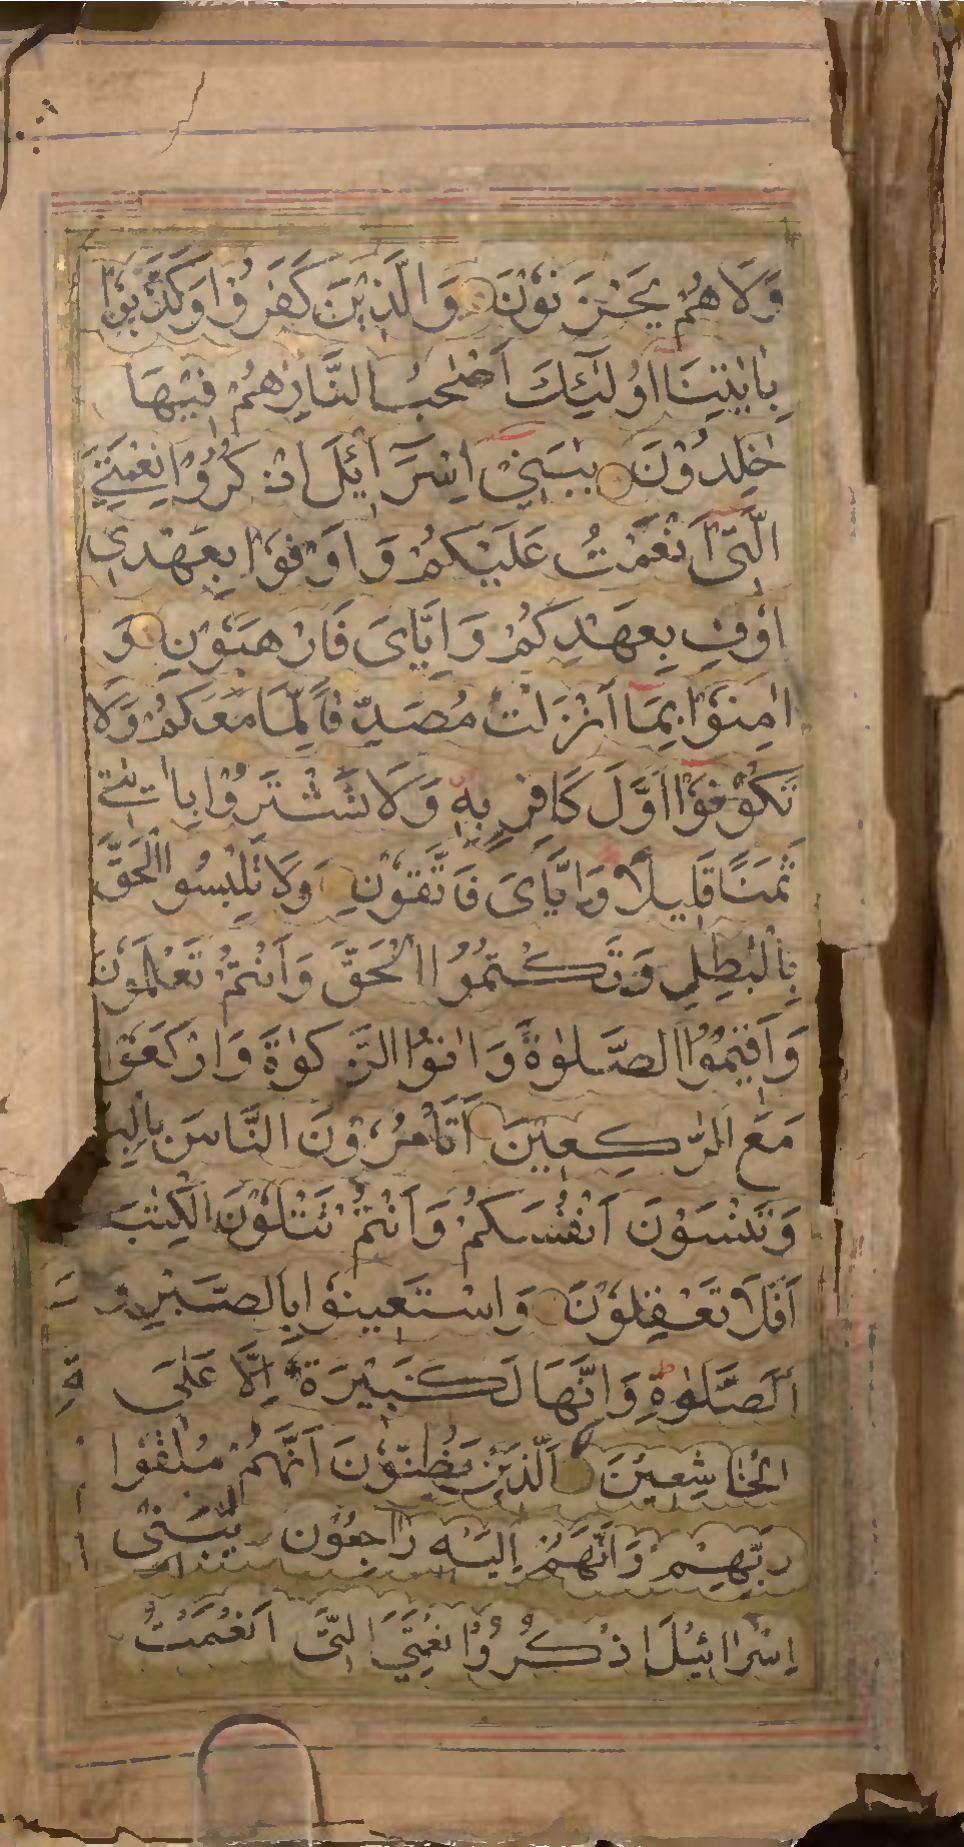 وَلَا هُمْ يَحْزَنُوْنَ وَالَّذِيْنَ كَفَرُوْا وَكَذَّبُوْا
بِاٰيٰتِنَا اُولٰٓئِكَ اَصْحٰبُ النَّارِ هُمْ فِيْهَا
خٰلِدُوْنَ يٰبَنِيْٓ اِسْرَآئِيْلَ اذْكُرُوْا نِعْمَتِيَ
الَّتِيْٓ اَنْعَمْتُ عَلَيْكُمْ وَاَوْفُوْا بِعَهْدِيْ
اُوْفِ بِعَهْدِكُمْ وَاِيَّايَ فَارْهَبُوْنِ وَ
اٰمِنُوْا بِمَآ اَنْزَلْتُ مُصَدِّقًا لِّمَا مَعَكُمْ وَلَا
تَكُوْنُوْٓا اَوَّلَ كَافِرٍ بِهٖ وَلَا تَشْتَرُوْا بِاٰيٰتِيْ
ثَمَنًا قَلِيْلًا وَاِيَّايَ فَاتَّقُوْنِ وَلَا تَلْبِسُوا الْحَقَّ
بِالْبٰطِلِ وَتَكْتُمُوا الْحَقَّ وَاَنْتُمْ تَعْلَمُوْنَ
وَاَقِيْمُوا الصَّلٰوةَ وَاٰتُوا الزَّكٰوةَ وَارْكَعُوْا
مَعَ الرّٰكِعِيْنَ اَتَاْمُرُوْنَ النَّاسَ بِالْبِرِّ
وَتَنْسَوْنَ اَنْفُسَكُمْ وَاَنْتُمْ تَتْلُوْنَ الْكِتٰبَ
اَفَلَا تَعْقِلُوْنَ وَاسْتَعِيْنُوْا بِالصَّبْرِ وَ
الصَّلٰوةِ وَاِنَّهَا لَكَبِيْرَةٌ اِلَّا عَلَى
الْخٰشِعِيْنَ الَّذِيْنَ يَظُنُّوْنَ اَنَّهُمْ مُّلٰقُوْا
رَبِّهِمْ وَاَنَّهُمْ اِلَيْهِ رَاجِعُوْنَ يٰبَنِيْٓ
اِسْرَائِيْلَ اذْكُرُوْا نِعْمَتِيَ الَّتِيْٓ اَنْعَمْتُ